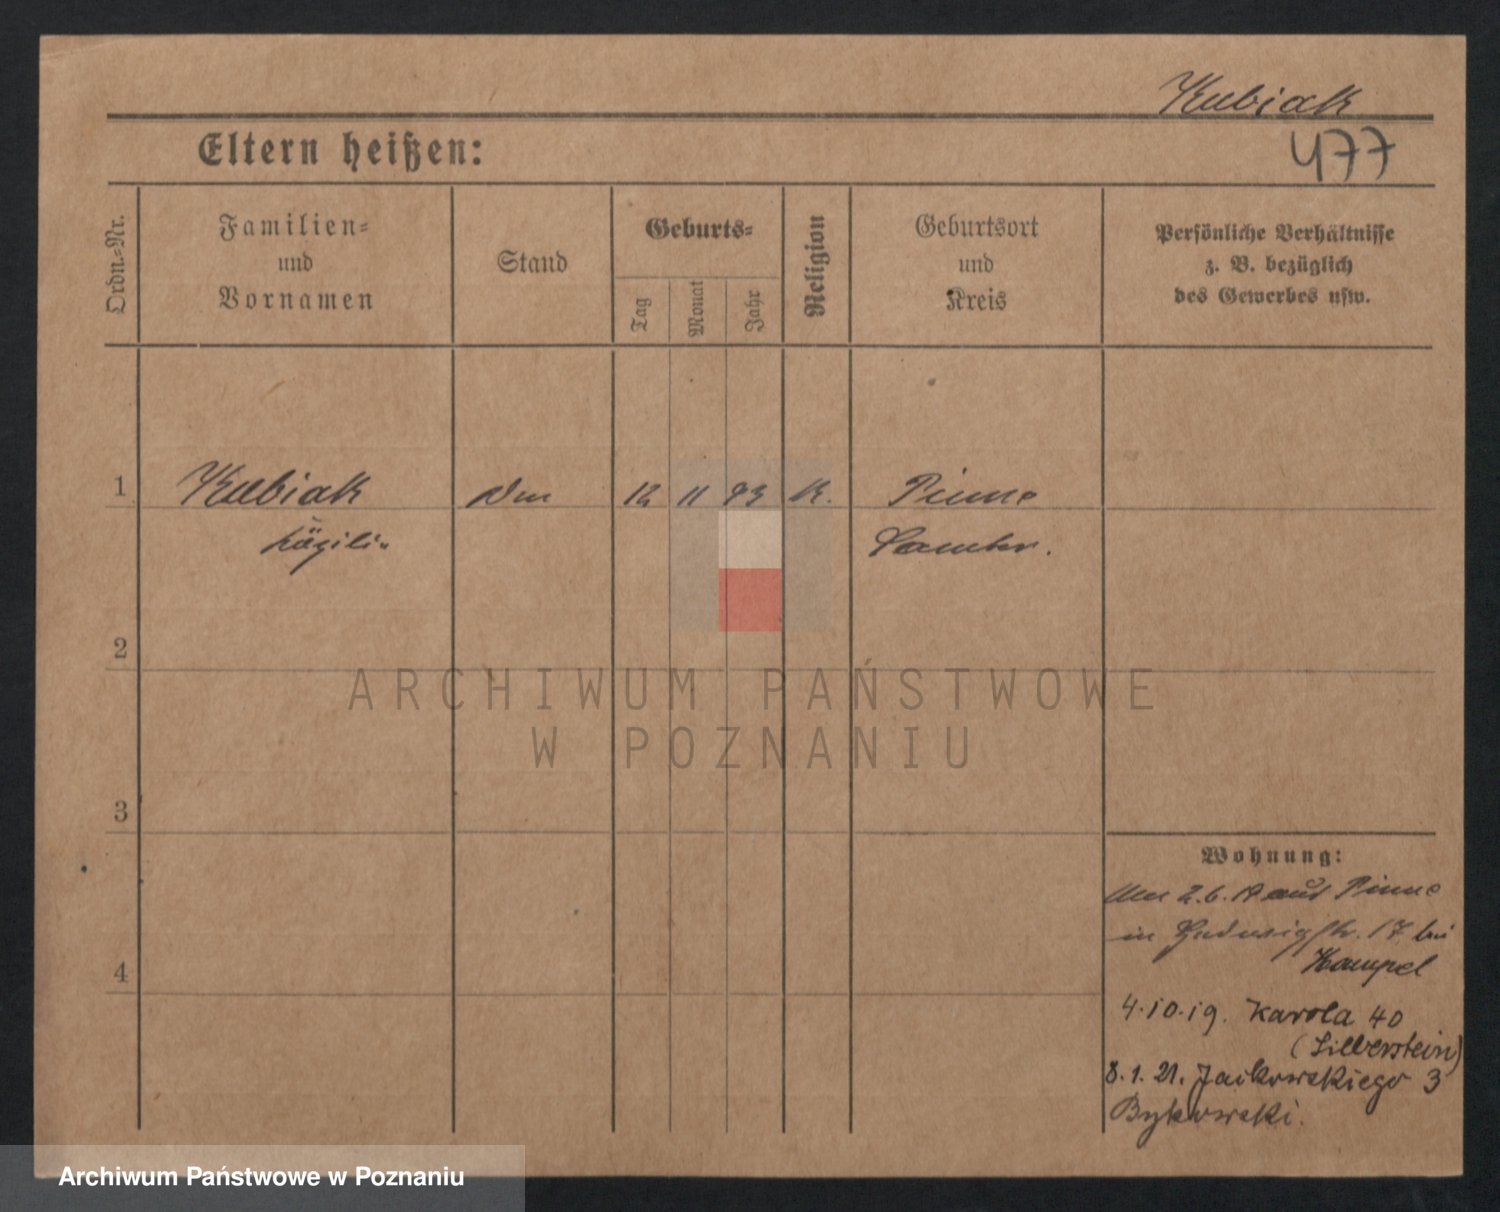 Kubiak
Eltern heißen:
477
Ordn.=Nr.
Familien=
und
Vornamen
Stand
Geburts=
Tag
Monat
Jahr
Religion
Geburtsort
und
Kreis
Persönliche Verhältnisse
z. B. bezüglich
des Gewerbes usw.
1
Kubiak
12 11 93 K.
Pinne
Samter.
2
ARCHIWUM PAŃSTWOWE
W POZNANIU
3
Wohnung:
2.6.19 aus Pinne
in Hedwigstr. 17 bei
Hampel
4
4.10.19. Karola 40
(Silberstein)
8.1.21. Jackowskiego 3
Bykowski.
Archiwum Państwowe w Poznaniu